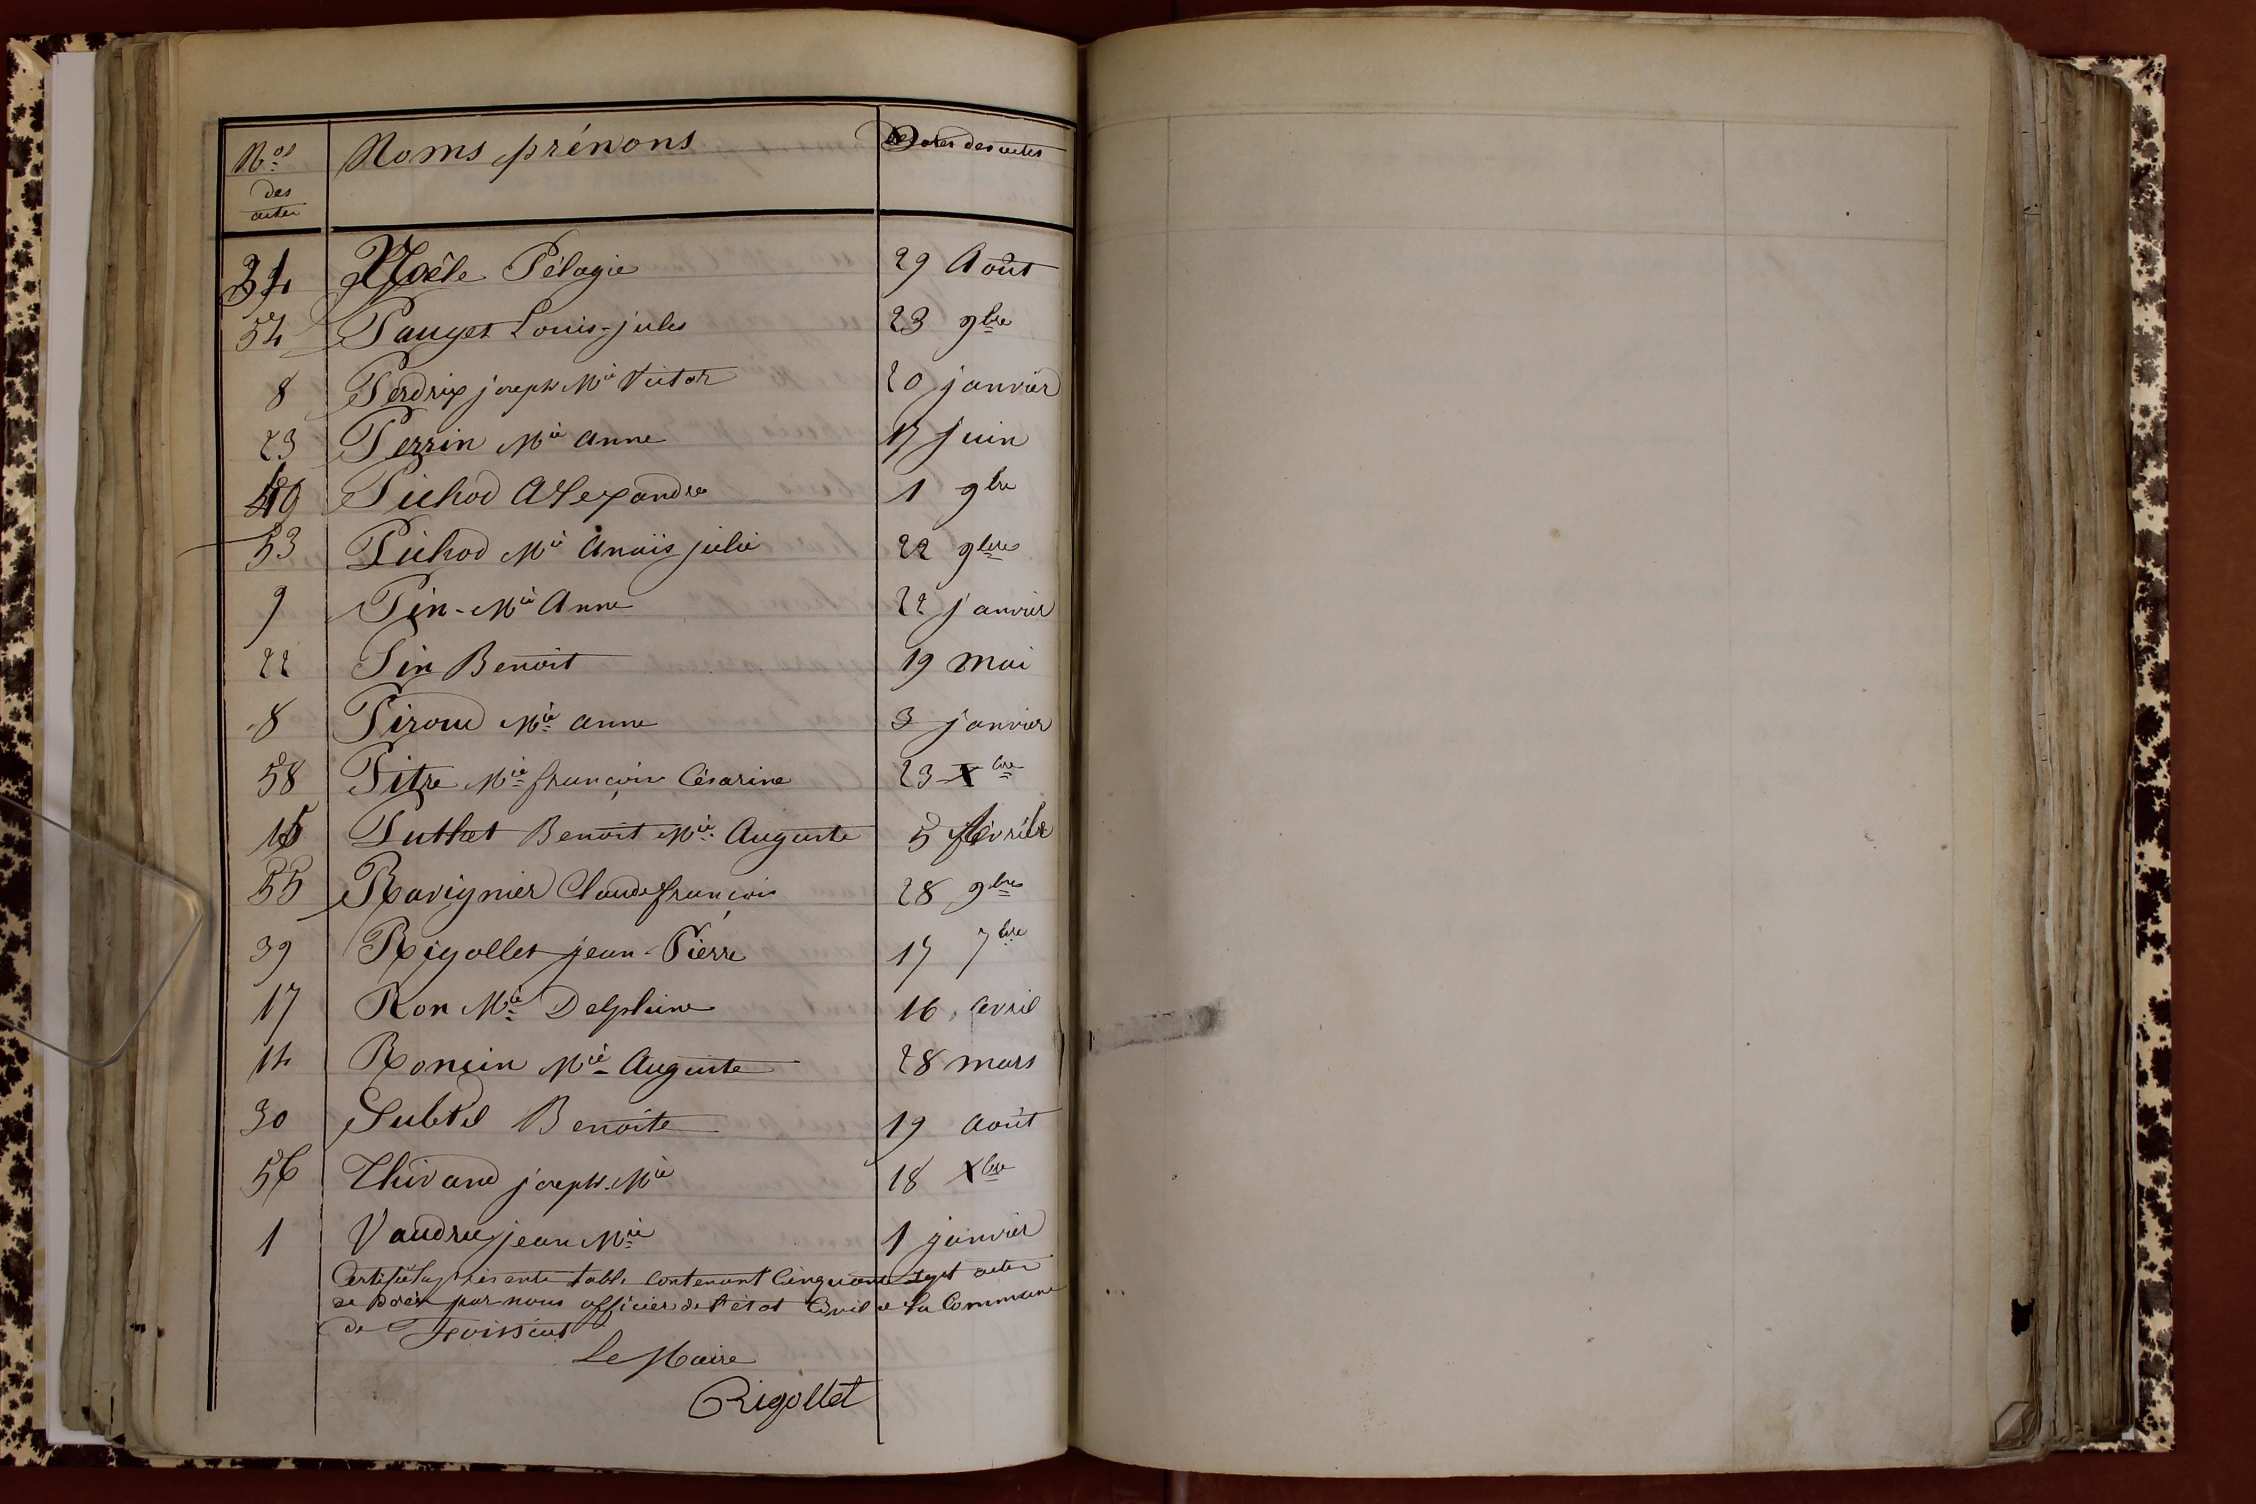 Nos des actes Noms prénons Dates des actes
34 Noêle Pélagie 29 Août
54 Pauget Louis-jules 23 9bre
8 Perdrix joseph Mie Victor 20 janvier
23 Perrin Mie anne 17 juin
49 Pichod Alexandre 1 9bre
53 Pichod Mie Anaïs julie 22 9bre
9 Pin-Mie Anne 22 janvier
22 Pin Benoit 19 mai
8 Piroud Mie anne 3 janvier
58 Pitre Mie françoise Césarine 23 Xbre
15 Puthet Benoit Mie Auguste 5 février
55 Ravignier Claude françois 28 9bre
39 Rigollet jean-Pierre 17 7bre
17 Ron Mie Delphine 16 avril
14 Roncin Mie Auguste 28 mars
30 Subtil Benoite 19 août
56 Thivand joseph-Mie 18 Xbre
1 Vaudrey jean Mie 1 janvier
Certifié la présente table contenant Cinquante sept actes
de Décès par nous officier de l'état Civil de la Commune
de Foissiat
Le Maire
Rigollet